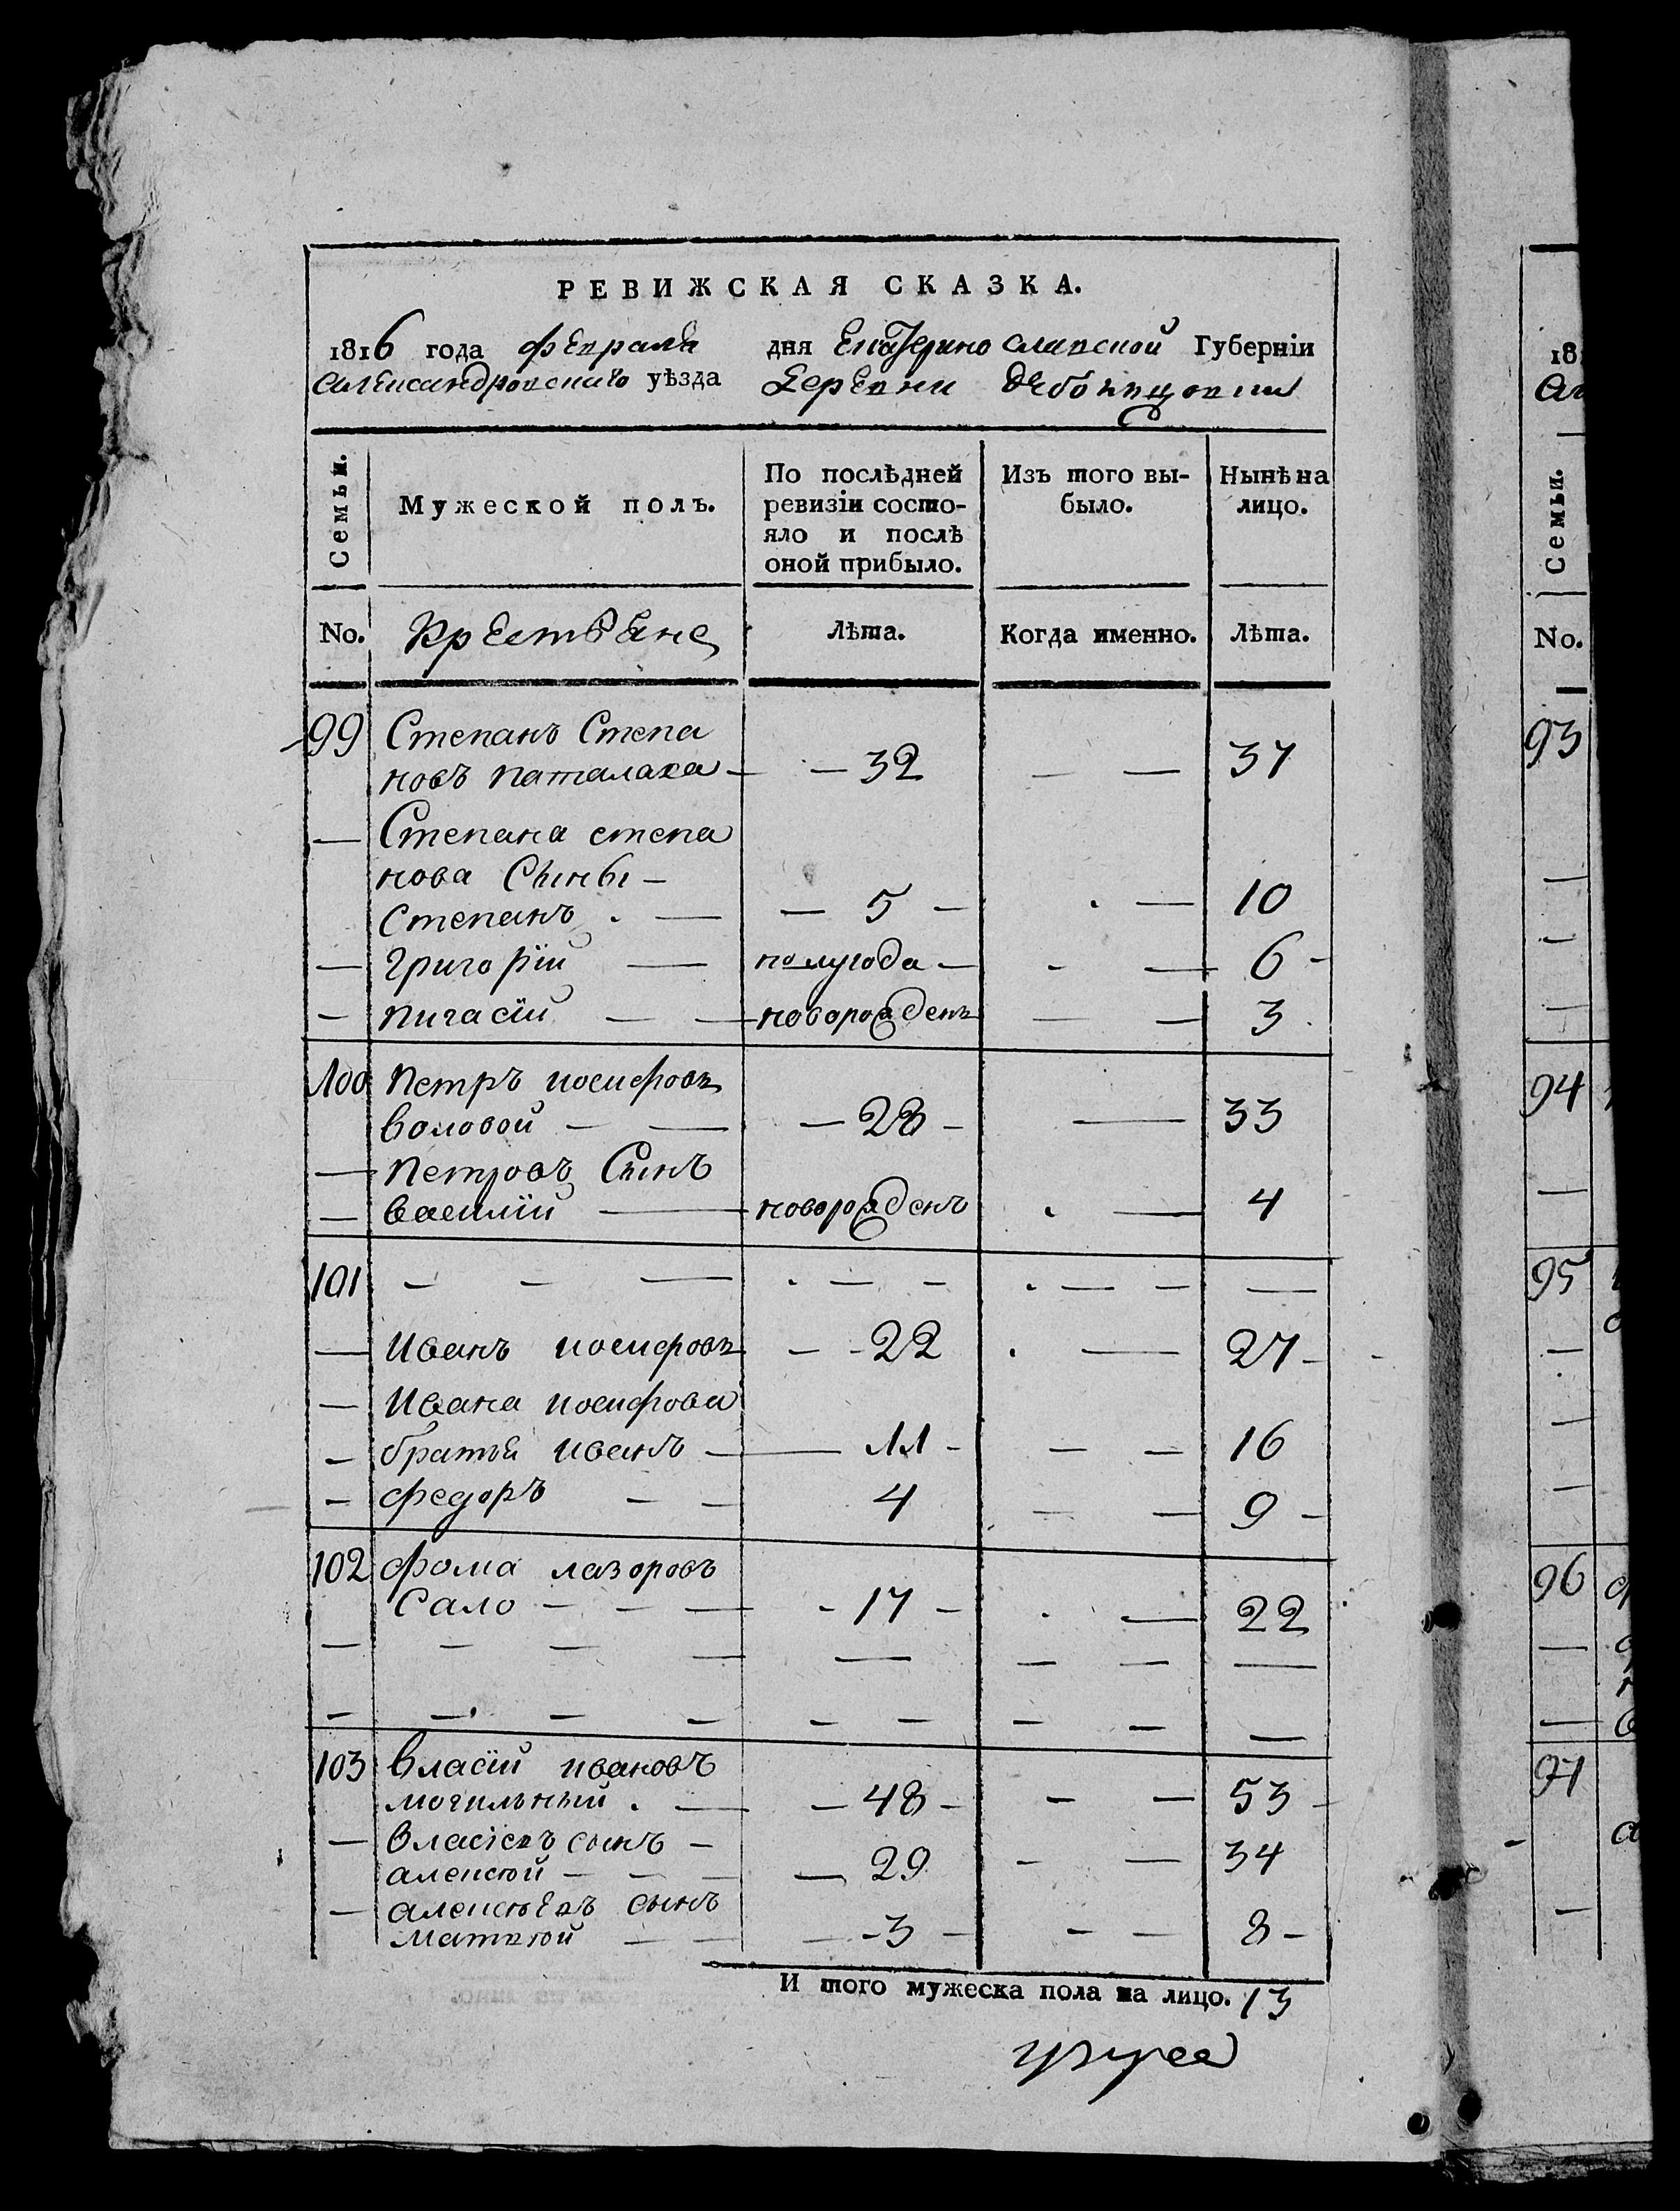 РЕВИЖСКАЯ СКАЗКА.
1816 года февраля дня Екатеринославской Губерніи
Александровскаго уѣзда Деревни
Семьи. Мужеской полъ. По послѣдней ревизіи состояло и послѣ оной прибыло. Изъ того выбыло. Нынѣ на лицо.
No. Крестьяне Лѣта. Когда именно. Лѣта.
99 Степанъ Степа
новъ паталаха — — 32 — — 37
— Степана степа
нова Сыны —
Степанъ . — — 5 — . — 10
— Григорій — полугода — - — 6 -
— пигасій — — новорожденъ — — 3 .
100 Петръ иосифовъ
воловой — — — 28 — — 33
— петровъ Сынъ
— василій — новорожденъ . — 4
101 — — — . — — . — — —
— Иванъ иосифовъ — - 22 . — 27 -
— Ивана иосифова
— братья иванъ — — 11 - — — 16
— федоръ — — 4 — — 9 -
102 Фома лазоровъ
Сало — — — - 17 — . — 22
— — — — — — — —
— — — — — — — — —
103 Власій ивановъ
могильный . — — 48 — — — 53 -
— власіевъ сынъ —
алексѣй — — — — 29 - — 34
— алексѣевъ сынъ
матвѣй — — — - 3 — — — 8 -
И того мужеска пола на лицо. 13
18
Ал
Семьи.
No.
93
—
—
—
94
—
95
—
—
—
96
—
—
97
—